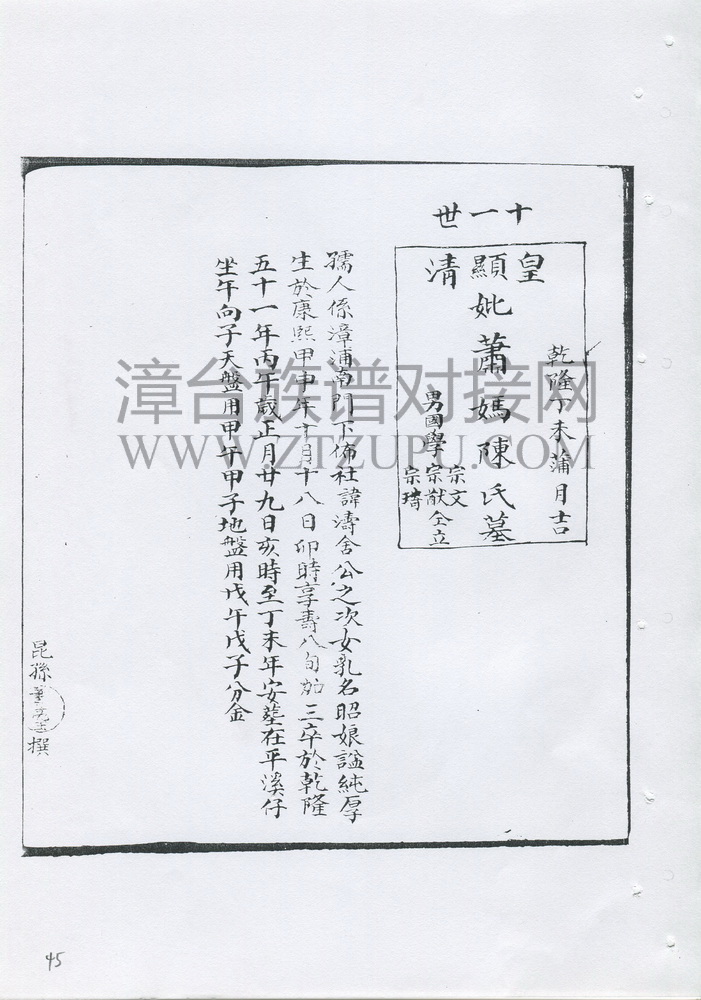 十一世
皇清
乾隆丁未蒲月吉
顯妣蕭媽陳氏墓
男國學宗文宗猷宗璿仝立
孺人係漳浦南門下佈社諱濤舍公之次女乳名昭娘諡純厚
生於康熙甲申年十月十八日卯時享壽八旬加三卒於乾隆
五十一年丙午歲正月廿九日亥時至丁未年安塟在平溪仔
坐午向子天盤用甲午甲子地盤用戊午戊子分金
昆孫撰
漳台族谱对接网
WWW.ZTZUPU.COM
45